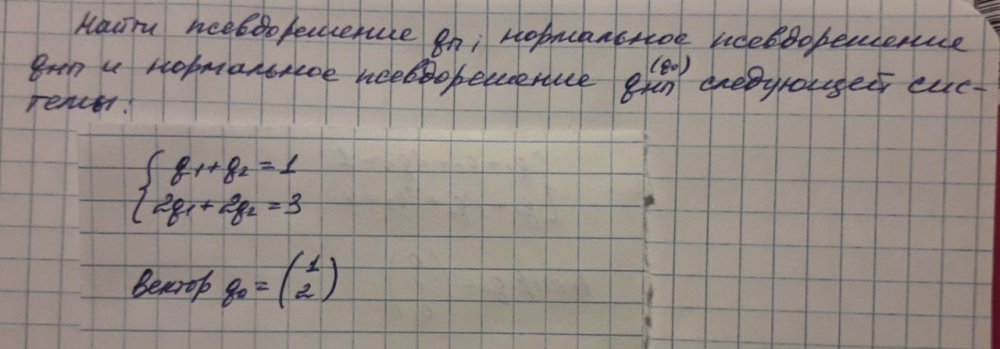 Найти псевдорешение qп, нормальное псевдорешение
qнп и нормальное псевдорешение qнп^(q0) следующей сис-
темы:
{ q1+q2 = 1
2q1+2q2 = 3
Вектор q0 = (1
2)